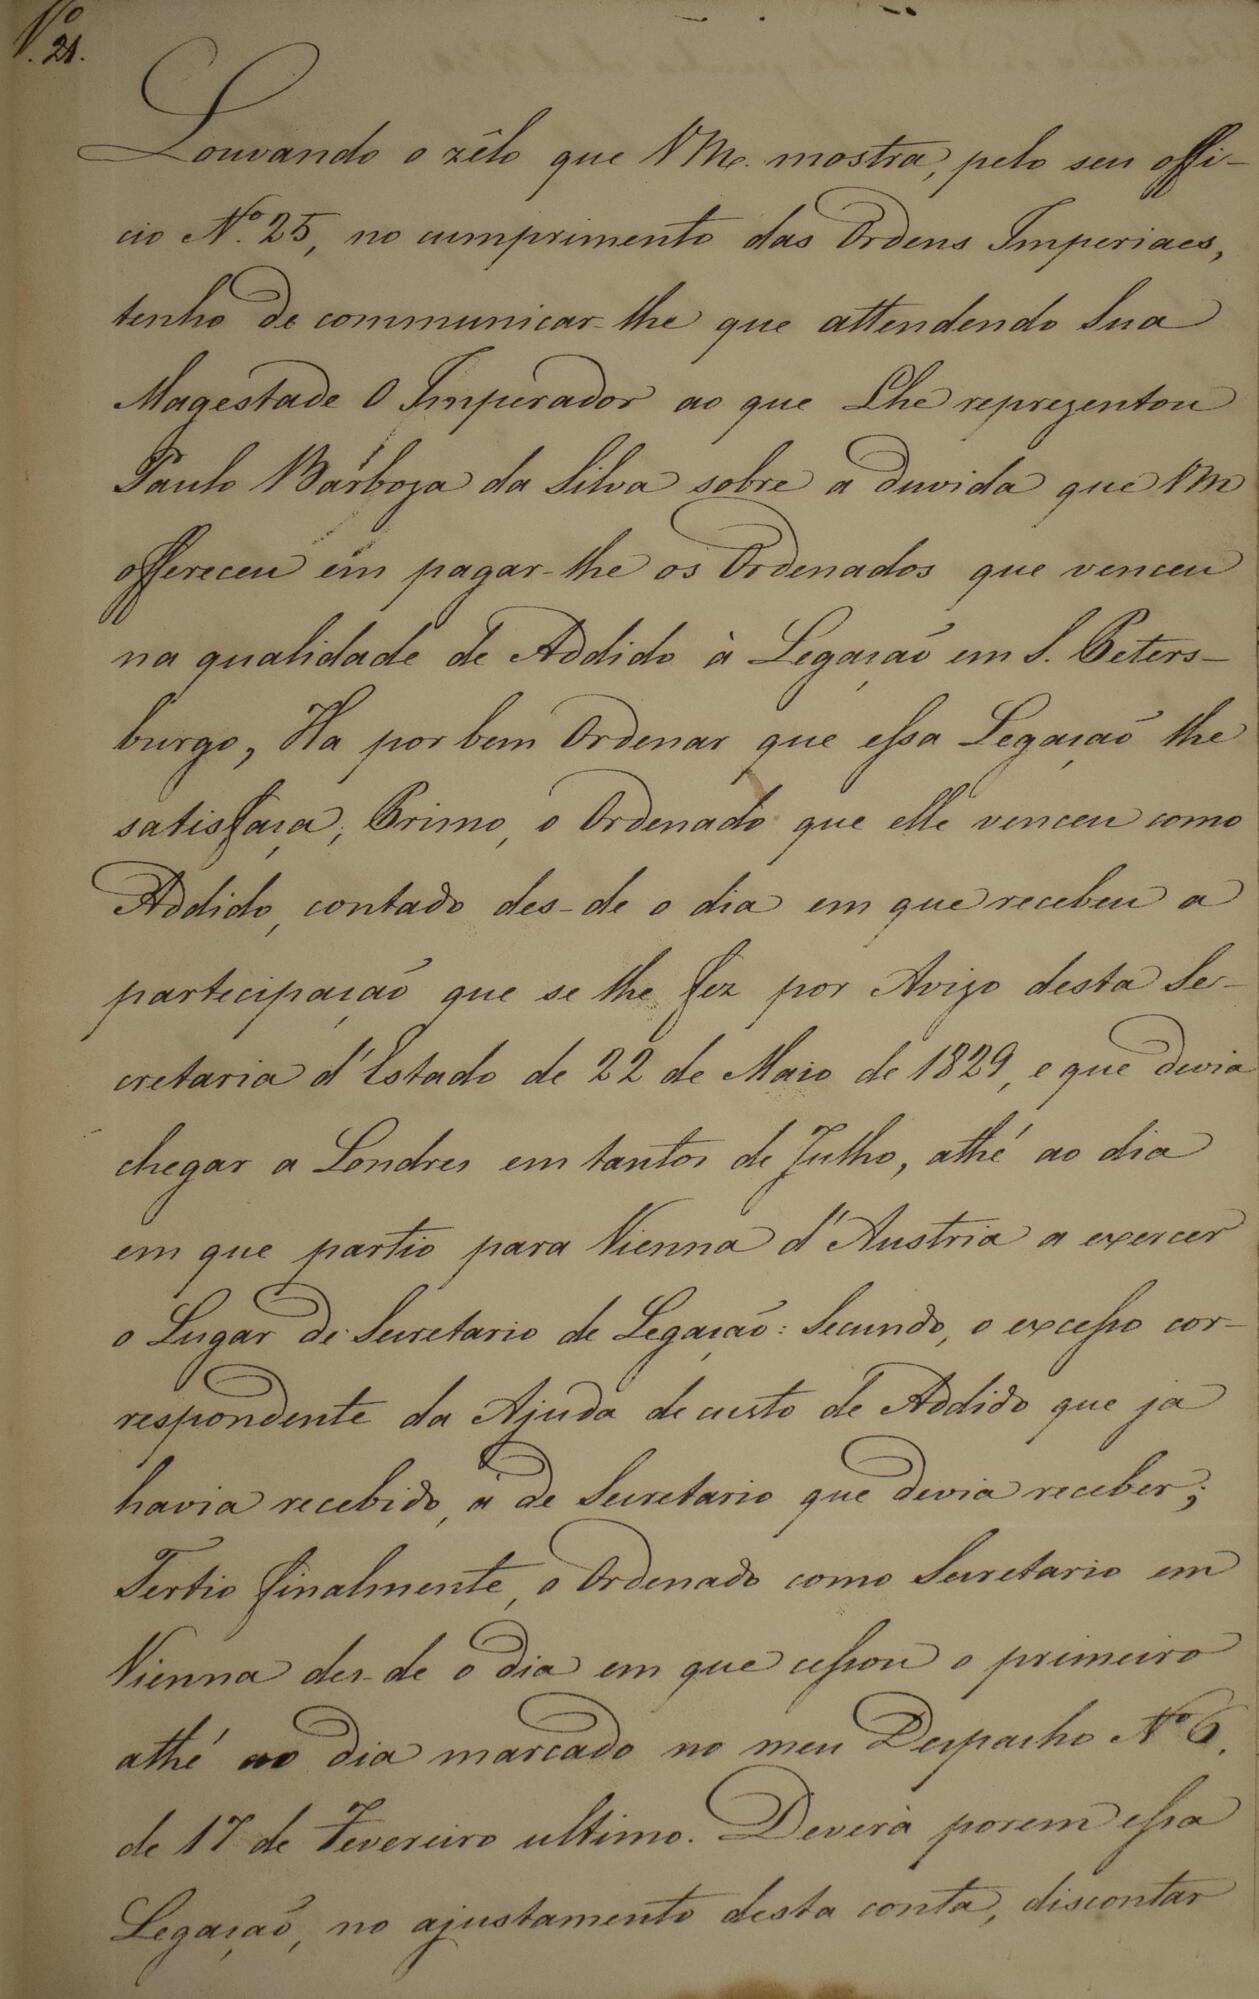 Nº 21.
Louvando o zêlo que VMc. mostra, pelo seu offi-
cio Nº. 25, no cumprimento das Ordens Imperiaes,
tenho de communicar-lhe que attendendo Sua
Magestade O Imperador ao que Lhe reprezentou
Paulo Barboza da Silva sobre a duvida que VM
offereceu em pagar-lhe os Ordenados que venceu
na qualidade de Addido à Legação em S. Peters-
burgo, Ha por bem Ordenar que essa Legação lhe
satisfaça; Primo, o Ordenado que elle venceu como
Addido, contado des-de o dia em que recebeu a
partecipação que se lhe fez por Avizo desta Se-
cretaria d'Estado de 22 de Maio de 1829, e que devia
chegar a Londres em tantos de Julho, athé ao dia
em que partio para Vienna d'Austria a exercer
o Lugar de Secretario de Legação: Secundo, o excesso cor-
respondente da Ajuda de custo de Addido que ja
havia recebido, á de Secretario que devia receber;
Tertio finalmente, o Ordenado como Secretario em
Vienna des-de o dia em que cessou o primeiro
athé ao dia marcado no meu Despacho Nº 6.
de 17 de Fevereiro ultimo. Deverà porem essa
Legação, no ajustamento desta conta, discontar